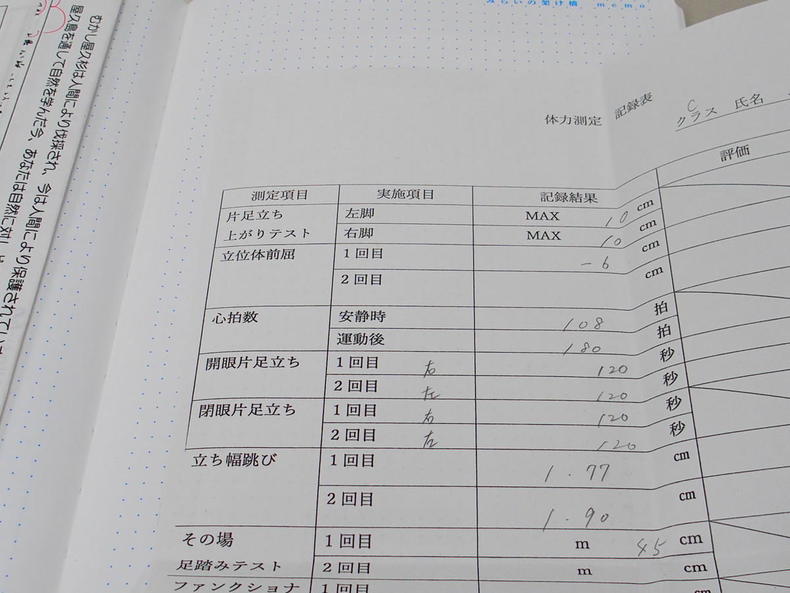 みらいの架け橋 memo
むかし屋久杉は人間により伐採され、今は人間により保護されてい
屋久島を通して自然を学んだ今、あなたは自然に対し
体力測定 記録表
C
クラス 氏名
測定項目 実施項目 記録結果 評価
片足立ち 左脚 MAX 10 cm
上がりテスト 右脚 MAX 10 cm
立位体前屈 1回目 -6 cm
2回目 cm
心拍数 安静時 108 拍
運動後 180 拍
開眼片足立ち 1回目 右 120 秒
2回目 左 120 秒
閉眼片足立ち 1回目 右 120 秒
2回目 左 120 秒
立ち幅跳び 1回目 1.77 cm
2回目 1.90 cm
その場 1回目 m 45 cm
足踏みテスト 2回目 m cm
ファンクショナ 1回目